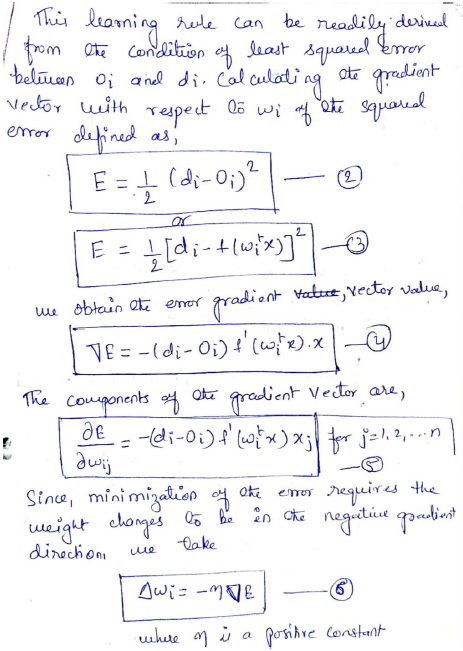 This learning rule can be readily derived
from the condition of least squared error
between Oi and di. Calculating the gradient
vector with respect to wi of the squared
error defined as,
E = 1/2 (di-Oi)² — ②
or
E = 1/2 [di - f(wiᵗx)]² — ③
we obtain the error gradient value, vector value,
∇E = -(di-Oi) f'(wiᵗx).x — ④
The components of the gradient vector are,
∂E/∂wij = -(di-Oi) f'(wiᵗx) xj for j=1,2,...n — ⑤
Since, minimization of the error requires the
weight changes to be in the negative gradient
direction, we take
Δwi = -η∇E — ⑥
where η is a positive constant